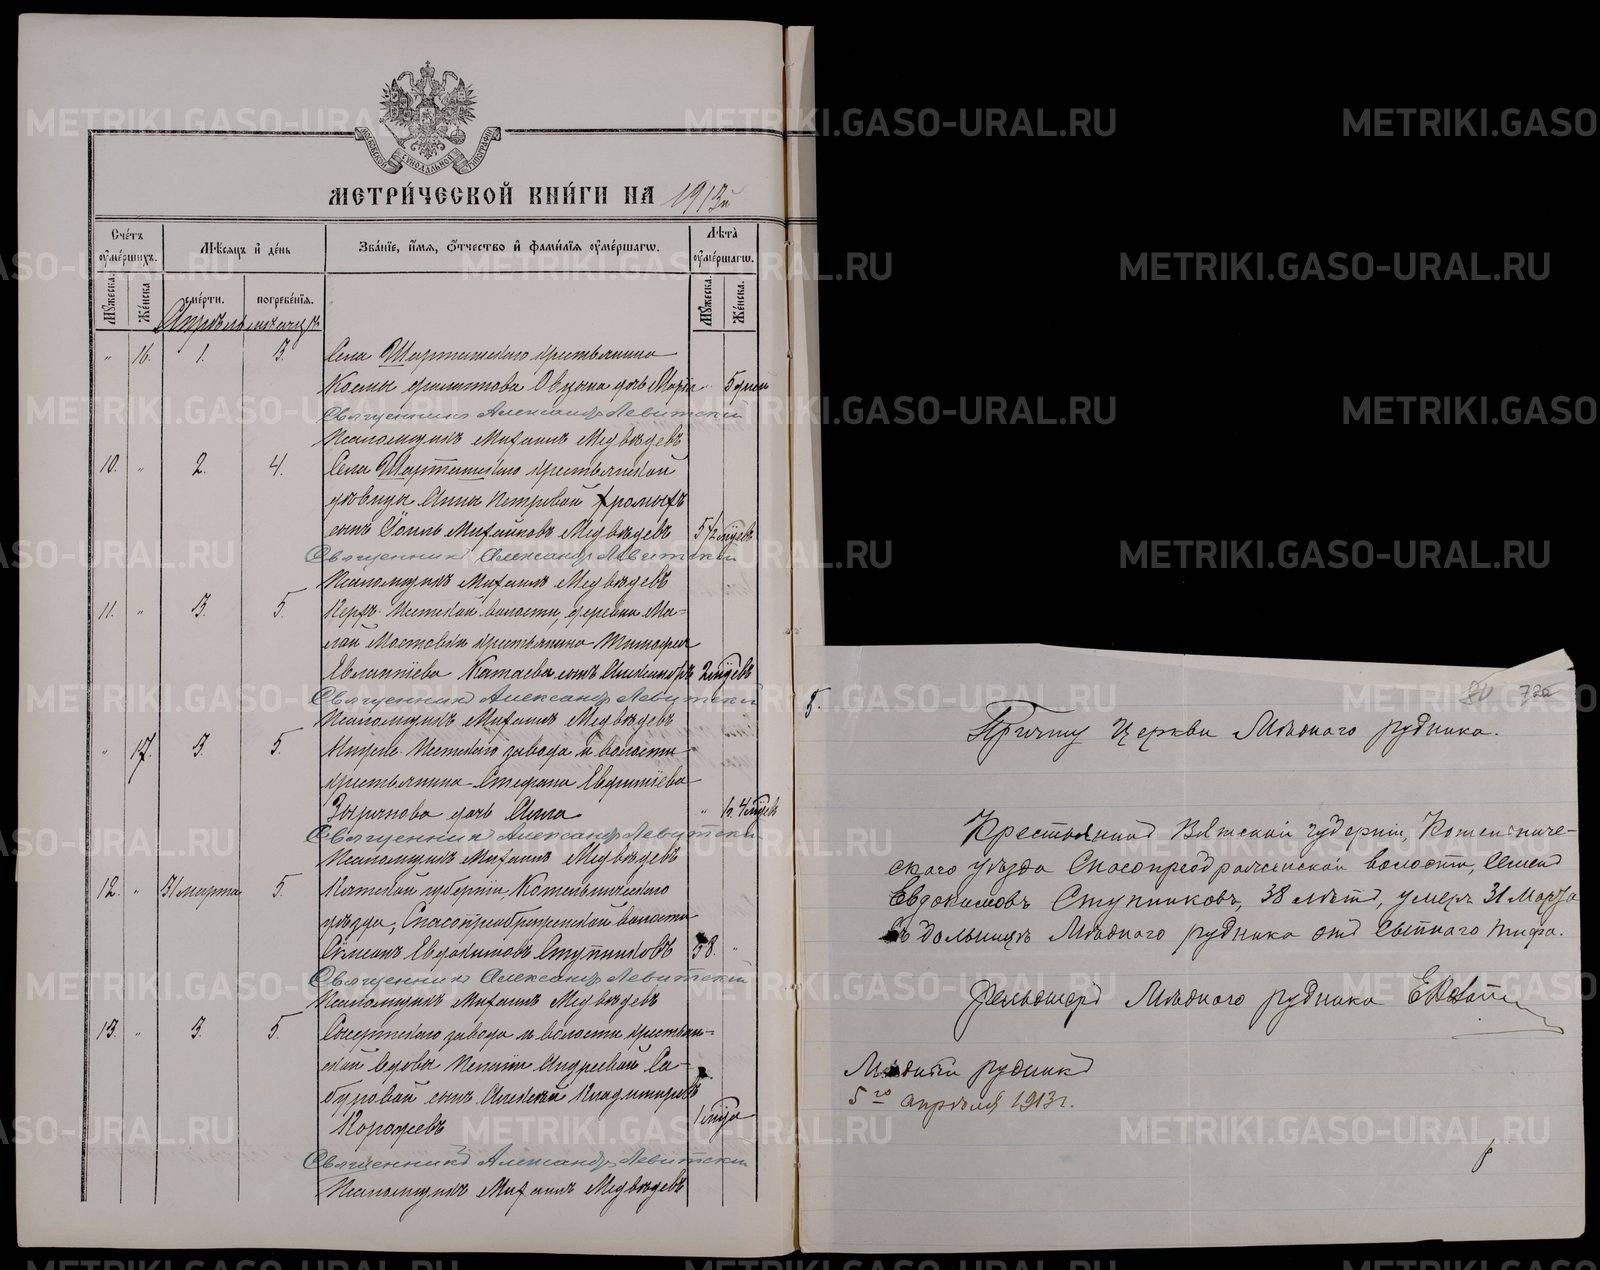 МЕТРИ́ЧЕСКОЙ КНИ́ГИ НА 1913й
Счє́тъ оумє́ршихъ.
Мѣ́сяцъ и҆ дє́нь
Зва́нїе, и҆́мя, ѻ҆́тчество и҆ фами́лїя оумє́ршагѡ.
Лѣ́та оумє́ршагѡ.
Мꙋ́жеска.
Жє́нска
смє́рти.
погребе́нїя.
Мꙋ́жеска.
Жє́нска.
Апрѣль мѣсяцъ
" 16. 1. 3. Села Шарташскаго крестьянина
Космы Филиппова дочь Марія " 5 дней
Священникъ Александръ Левитскій
Псаломщикъ Михаилъ Медвѣдевъ
10. " 2. 4. Села Шарташскаго крестьянской
дѣвицы Анны Петровой
сынъ Михайловъ Медвѣдевъ 5 1/2 мѣсяц
Священникъ Александръ Левитскій
Псаломщикъ Михаилъ Медвѣдевъ
11. " 3. 5. Верх-Исетской волости, деревни Ма-
лой Мостовки крестьянина Тимофея
Евлампіева Катаева сынъ Александръ 2 мѣсяц
Священникъ Александръ Левитскій
Псаломщикъ Михаилъ Медвѣдевъ
" 17. 3. 5. Нижне-Исетскаго завода и волости
крестьянина Стефана Евфиміева
Зырянова дочь Анна "
Священникъ Александръ Левитскій
Псаломщикъ Михаилъ Медвѣдевъ
12. " 31 марта 5. Вятской губерніи, Котельническаго
уѣзда, Спасопреображенской волости
Симеонъ Евдокимовъ Ступниковъ 38. "
Священникъ Александръ Левитскій
Псаломщикъ Михаилъ Медвѣдевъ
13. " 3. 5. Сысертскаго завода и волости крестьян-
ской вдовы Андреевой Са-
буровой сынъ Алексѣй Владиміровъ
1 мѣсяц
Священникъ Александръ Левитскій
Псаломщикъ Михаилъ Медвѣдевъ
5.
Причту Церкви Мѣднаго рудника.
Крестьянинъ Вятской губерніи, Котельниче-
скаго уѣзда Спасопреображенской волости, Семенъ
Евдокимовъ Ступниковъ, 38 лѣтъ, умеръ 31 Марта
въ больницѣ Мѣднаго рудника отъ сыпнаго тифа.
Фельдшеръ Мѣднаго рудника
Мѣдный рудникъ
5го апрѣля 1913 г.
METRIKI.GASO-URAL.RU